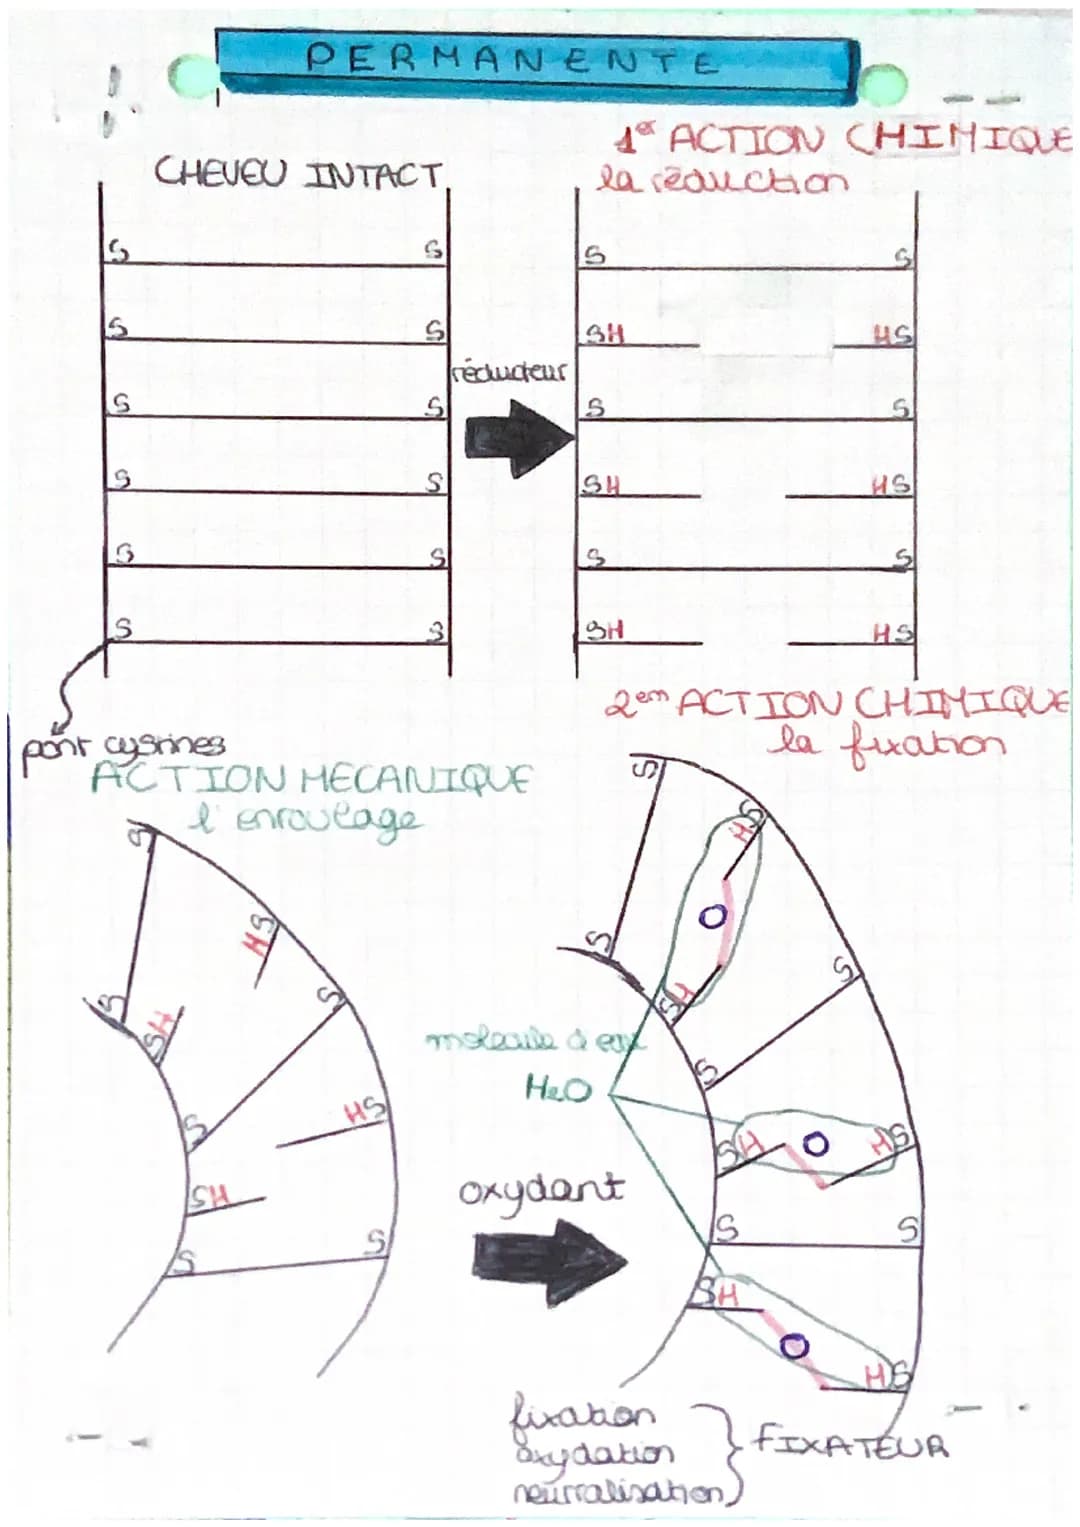 PERMANENTE
CHEVEU INTACT
1er ACTION CHIMIQUE
la réduction
S S
S S
S S
S S
S S
S S
réducteur
S S
SH HS
S S
SH HS
S S
SH HS
pont cystines
ACTION MECANIQUE
l'enroulage
S
HS
S
SH
S
S
HS
SH
S
S
2em ACTION CHIMIQUE
la fixation
S
HS
O
S
SH
S
S
molécule d'eau
H2O
SH O HS
S S
SH
O
HS
oxydant
fixation
oxydation
neutralisation
FIXATEUR